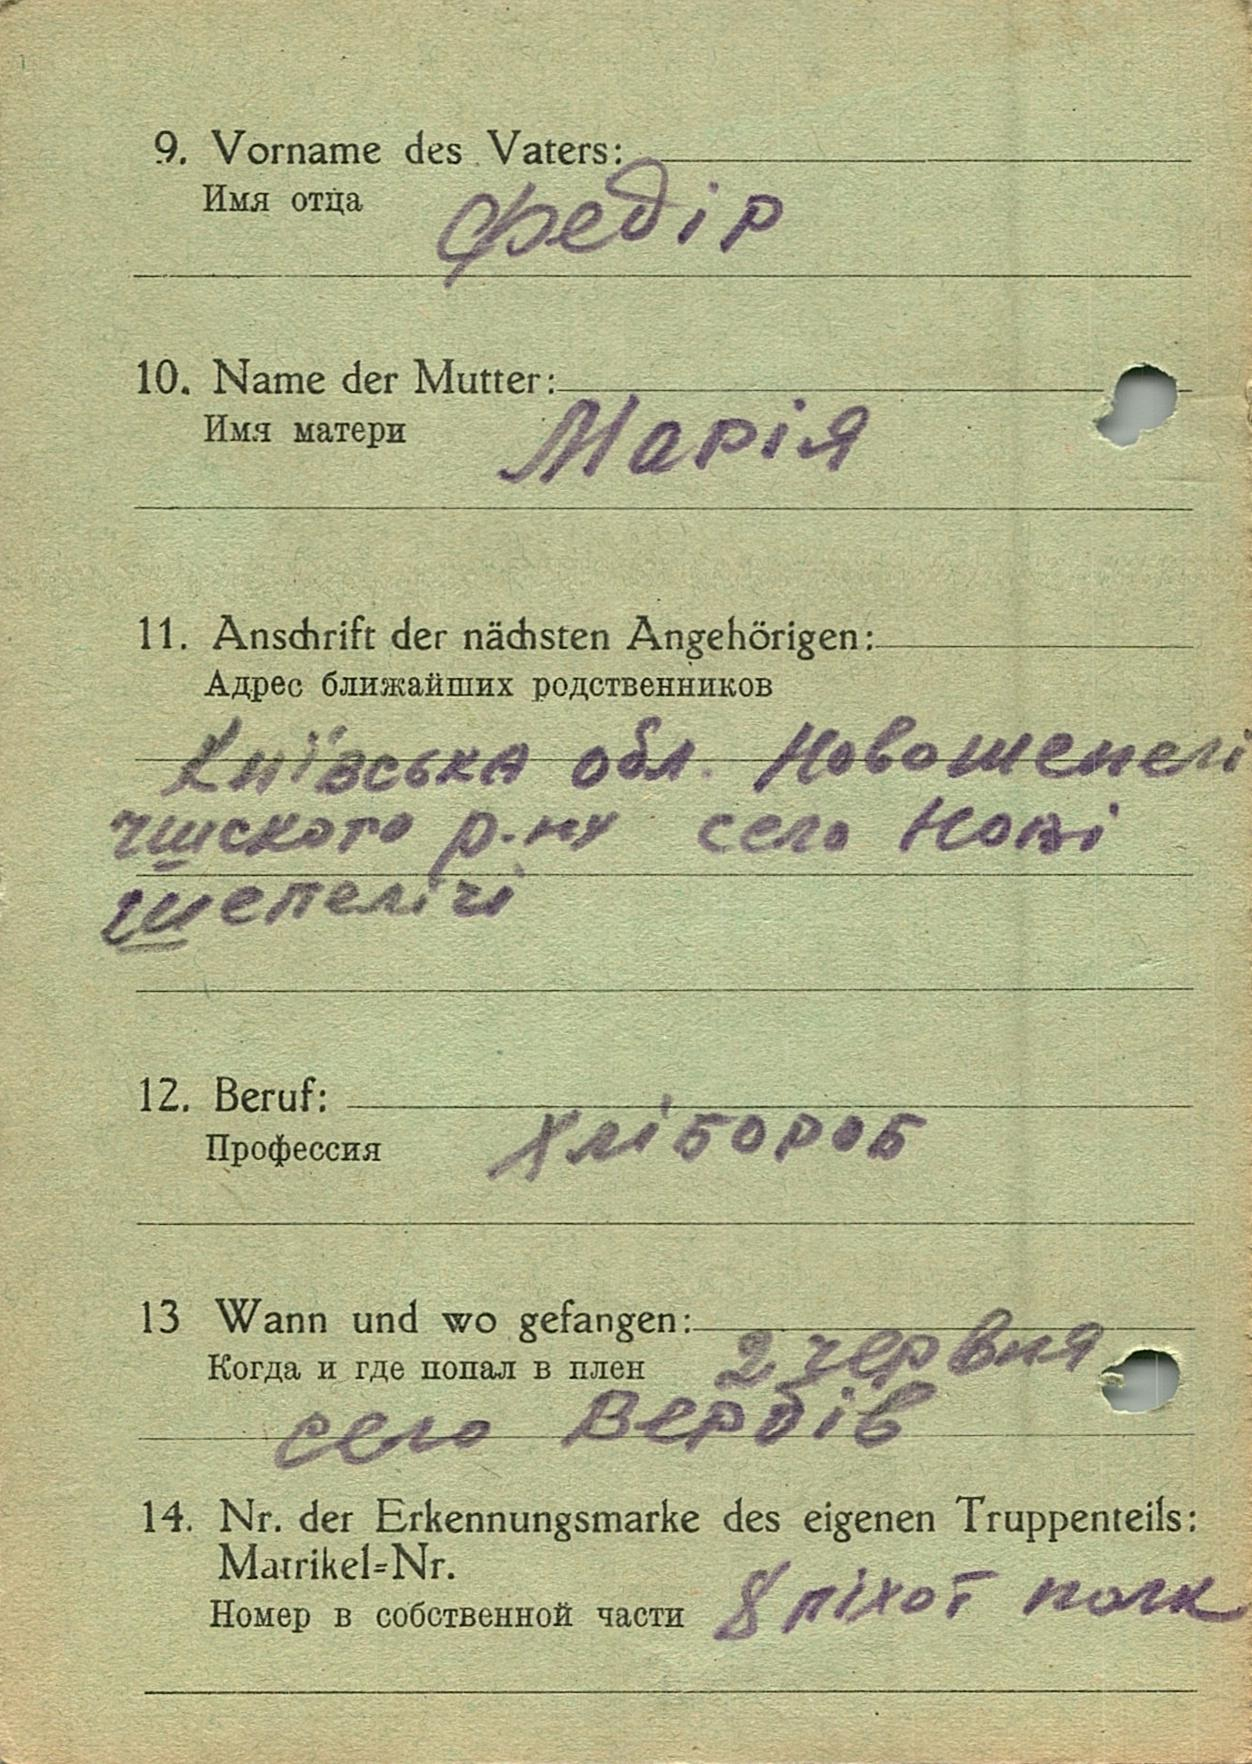 9. Vorname des Vaters:
Имя отца
Федір
10. Name der Mutter:
Имя матери
Марія
11. Anschrift der nächsten Angehörigen:
Адрес ближайших родственников
Київська обл. Новошепелі
чшского р-ну село Нові
Шепелічі
12. Beruf:
Профессия
Хлібороб
13 Wann und wo gefangen:
Когда и где попал в плен 2 червня
село Вербів
14. Nr. der Erkennungsmarke des eigenen Truppenteils:
Matrikel=Nr.
Номер в собственной части 8 піхот полк